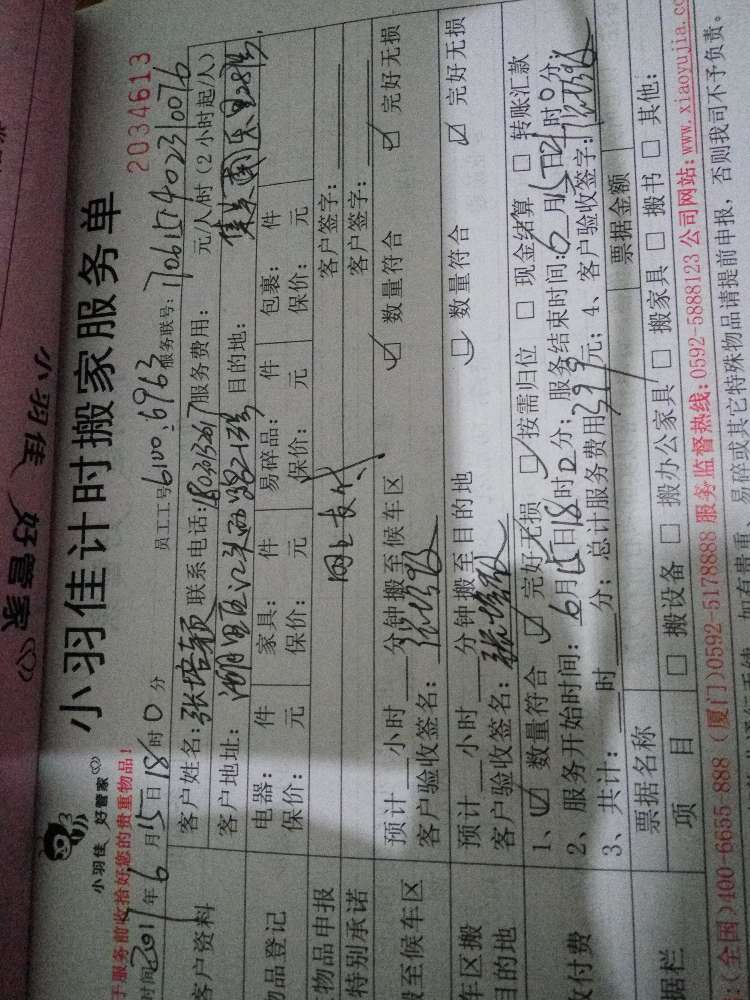 小羽佳 好管家
小羽佳 好管家
小羽佳计时搬家服务单
2034613
于服务前收拾好您的贵重物品！
员工工号6100、6963 服务联号：
时间2017年6月15日18时0分
客户资料
客户姓名：张培颖 联系电话： 服务费用： 元/人/时（2小时起/人）
客户地址：湖里区江头西路 目的地：
物品登记
电器： 件 家具： 件 易碎品： 件 包裹： 件
保价： 元 保价： 元 保价： 元 保价： 元
物品申报 网上支付 客户签字：
特别承诺 客户签字：
搬至候车区
预计 小时 分钟搬至候车区 ☑ 数量符合 ☑ 完好无损
客户验收签名：
车区搬
目的地
预计 小时 分钟搬至目的地 ☑ 数量符合 ☑ 完好无损
客户验收签名：
付费
1、☑ 数量符合 ☑ 完好无损 ☑ 按需归位 □ 现金结算 □ 转账汇款
2、服务开始时间：6月15日18时0分；服务结束时间：6月15日21时0分
3、共计： 时 分；总计服务费用299元；4、客户验收签字：
票据名称 票据金额
据栏
项目 □ 搬设备 □ 搬办公家具 □ 搬家具 □ 搬书 □ 其他：
：（全国）400-6655-888（厦门）0592-5178888 服务监督热线：0592-5888123 公司网站：www.xiaoyujia.co
易碎或其它特殊物品请提前申报，否则我司不予负责。